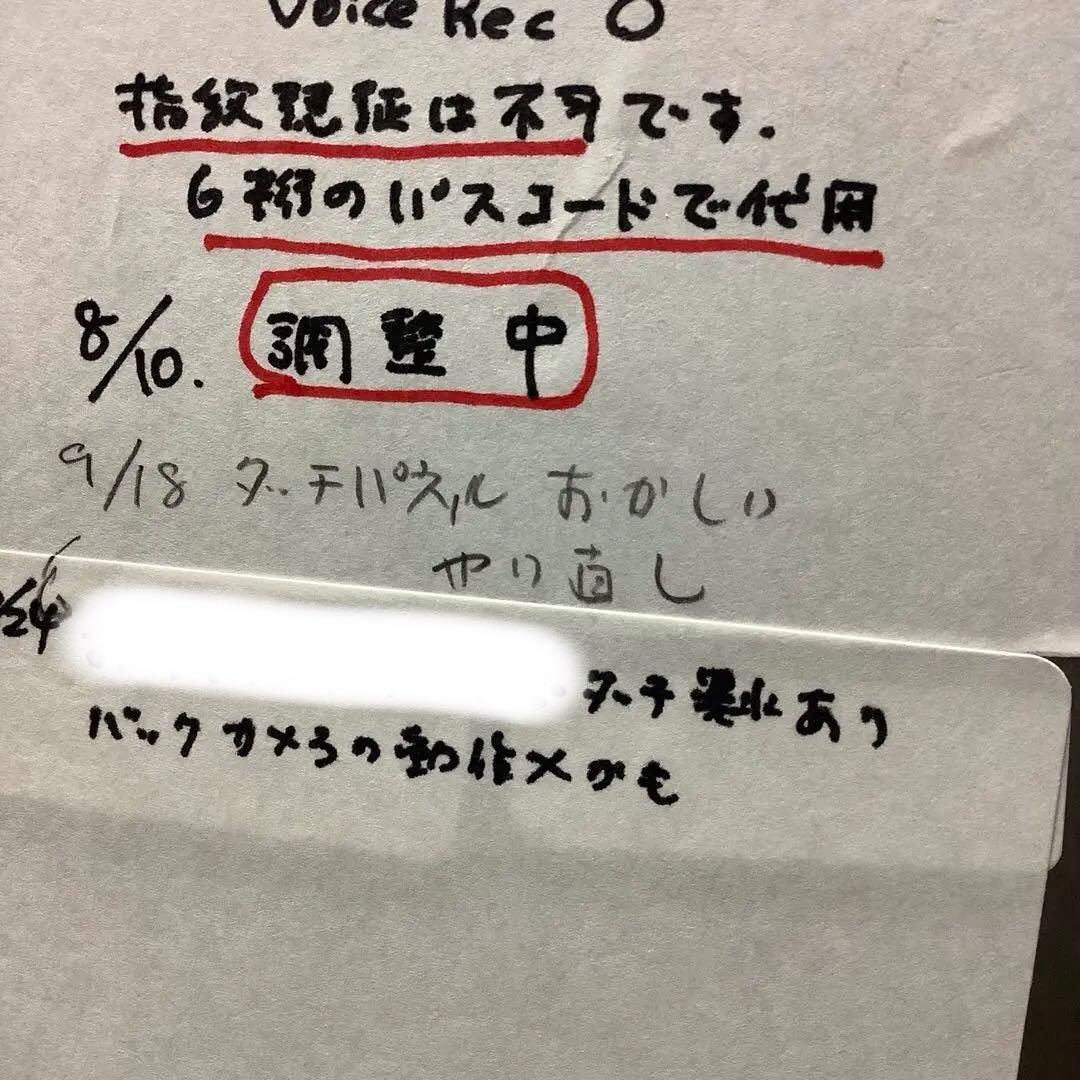 Voice Rec O
指紋認証は不可です.
6桁のパスコードで代用
8/10. 調整中
9/18 タッチパネル おかしい
やり直し
タッチ異常あり
バックカメラの動作×かも